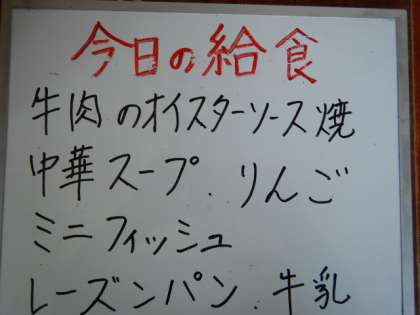 今日の給食
牛肉のオイスターソース焼
中華スープ.りんご
ミニフィッシュ
レーズンパン.牛乳